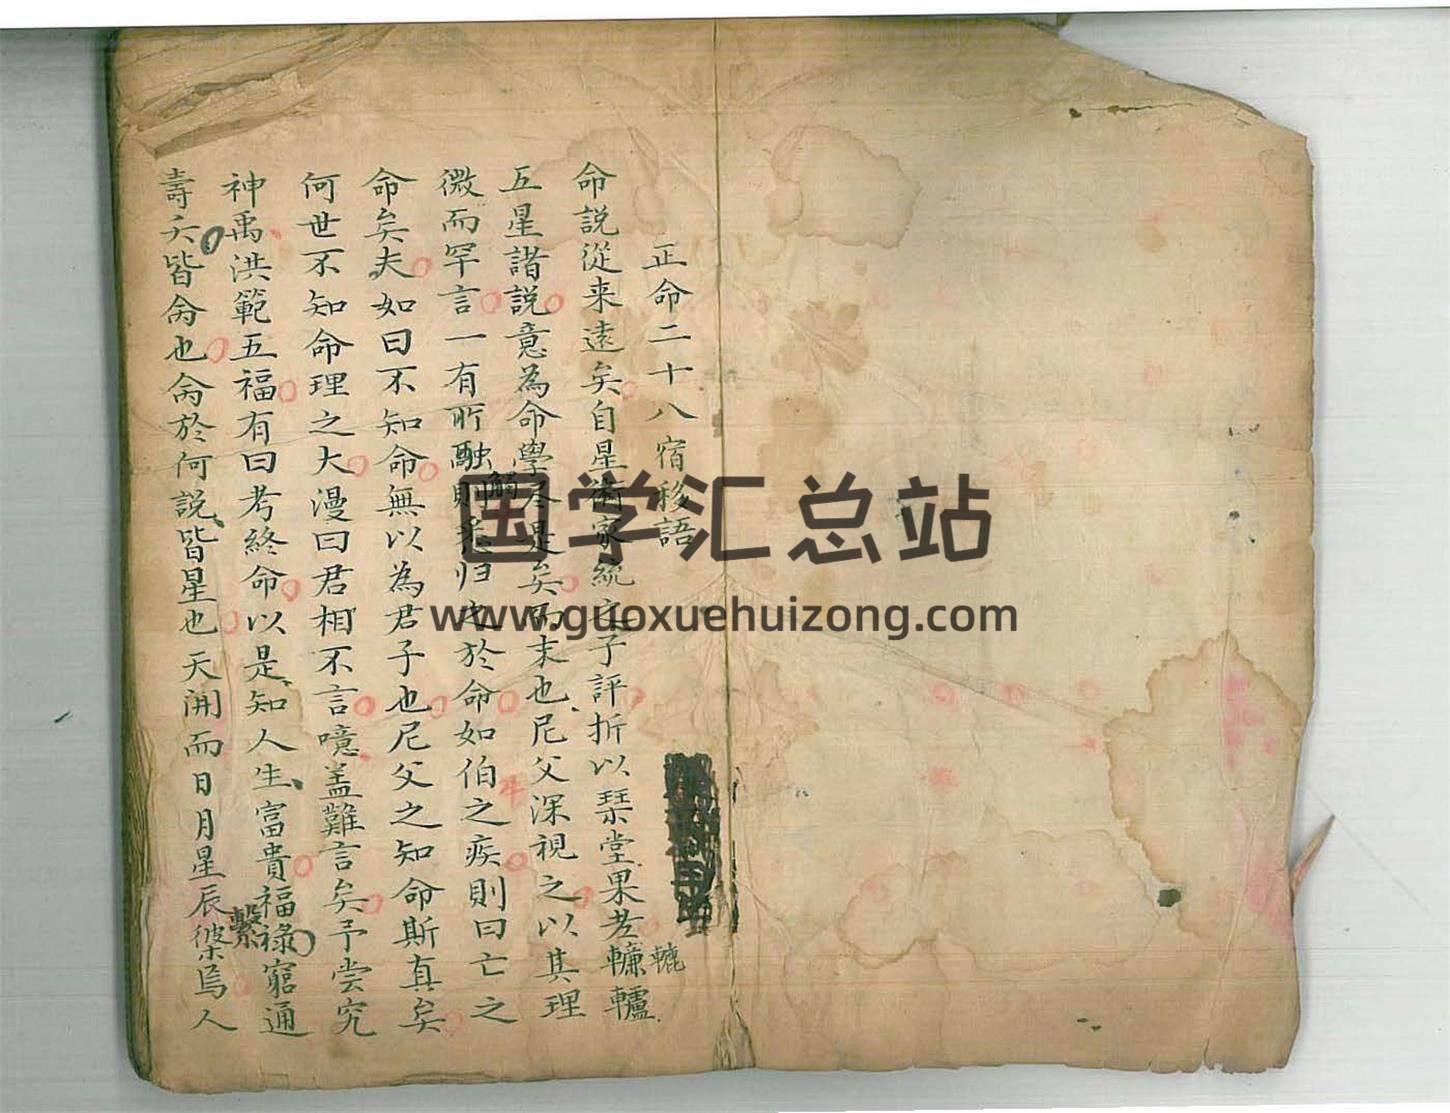 正命二十八宿移語
命説從来遠矣自星術家統之子評折以琹堂果老轆轤
轆
五星諸説意為命學尽是矣而末也尼父深視之以其理
微而罕言一有所融則来归之於命如伯之疾則曰亡之
觸
命矣夫如曰不知命無以為君子也尼父之知命斯真矣
何世不知命理之大漫曰君相不言噫盖難言矣予尝究
神禹洪範五福有曰考終命以是知人生富貴福祿窮通
壽夭皆命也命於何説皆星也天開而日月星辰 焉人
繫
国学汇总站
www.guoxuehuizong.com